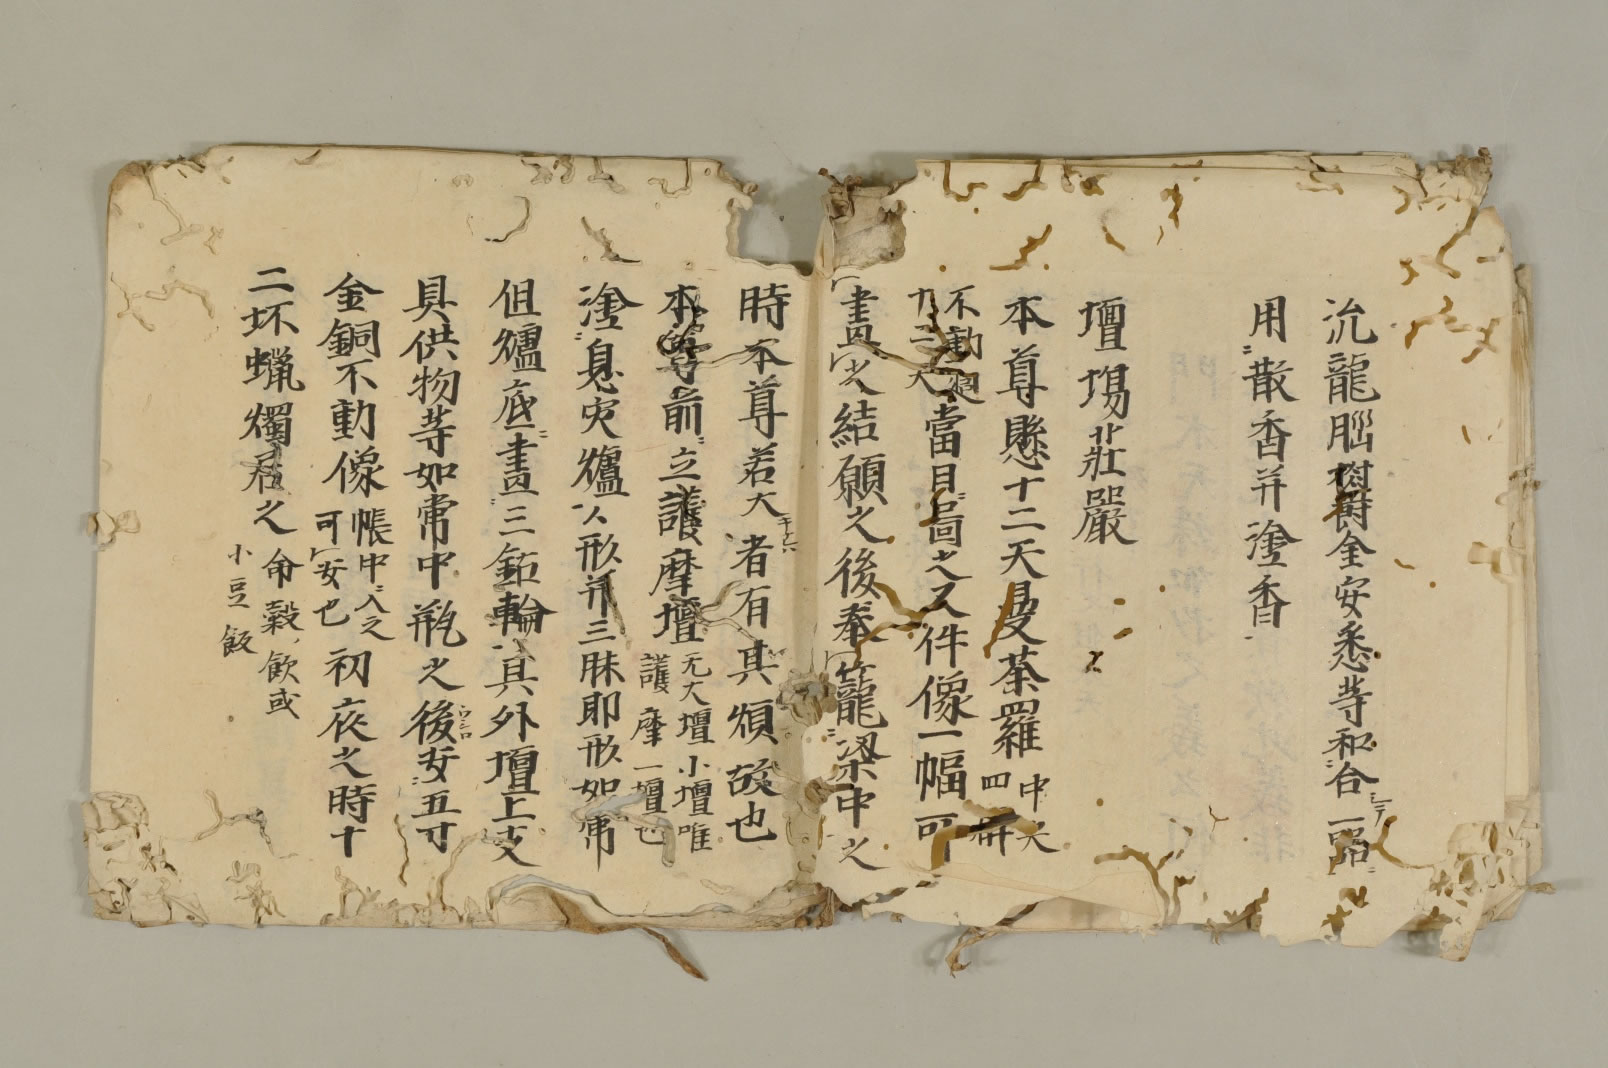 沉龍脳欝金安悉等和合一器
用散香并塗香
壇場莊嚴
本尊懸十二天曼荼羅中大四冊
不動十二天當日啚之又件像一幅可
畫之結願之後奉籠梁中之
時本尊若大者有其煩故也
本尊前立護摩壇无大壇小壇唯護摩一壇也
塗息灾爐人形并三昧耶形如常
但爐底畫三鈷輪其外壇上支
具供物等如常中瓶之後安五寸
金銅不動像帳中入之可安也初夜之時十
二坏蠟燭居之命穀飲或小豆飯